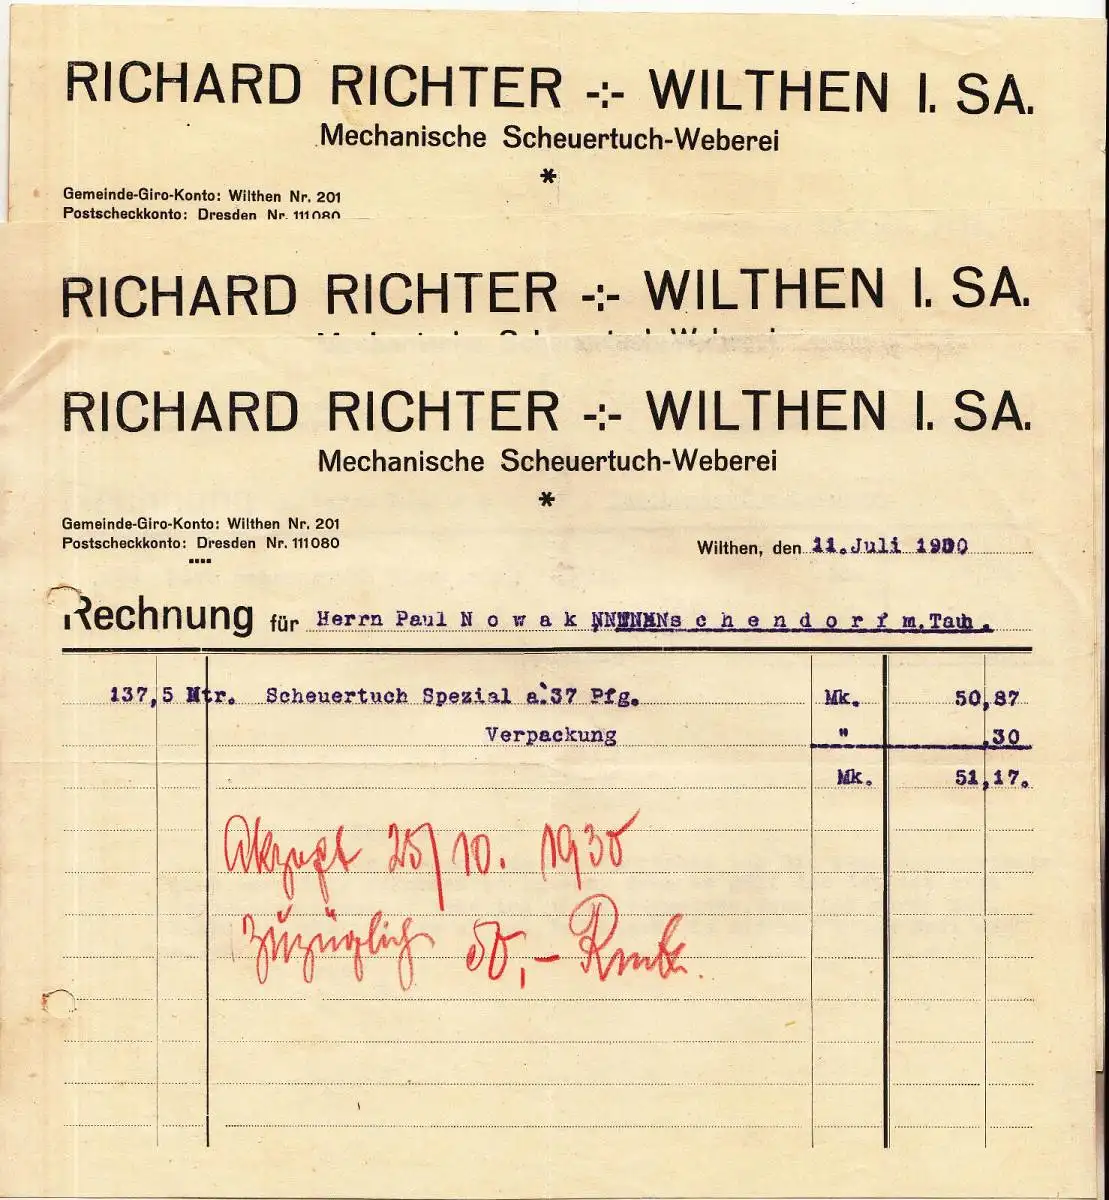 RICHARD RICHTER -:- WILTHEN I. SA.
Mechanische Scheuertuch-Weberei
*
Gemeinde-Giro-Konto: Wilthen Nr. 201
Postscheckkonto: Dresden Nr. 111080
RICHARD RICHTER -:- WILTHEN I. SA.
RICHARD RICHTER -:- WILTHEN I. SA.
Mechanische Scheuertuch-Weberei
*
Gemeinde-Giro-Konto: Wilthen Nr. 201
Postscheckkonto: Dresden Nr. 111080
Wilthen, den 11. Juli 1930
Rechnung für Herrn Paul Nowak schendorf m. Tauh.
137,5 Mtr. Scheuertuch Spezial a' 37 Pfg. Mk. 50,87
Verpackung " .30
Mk. 51,17.
Akzept 25/10. 1930
zuzüglich 50,- Rmk.